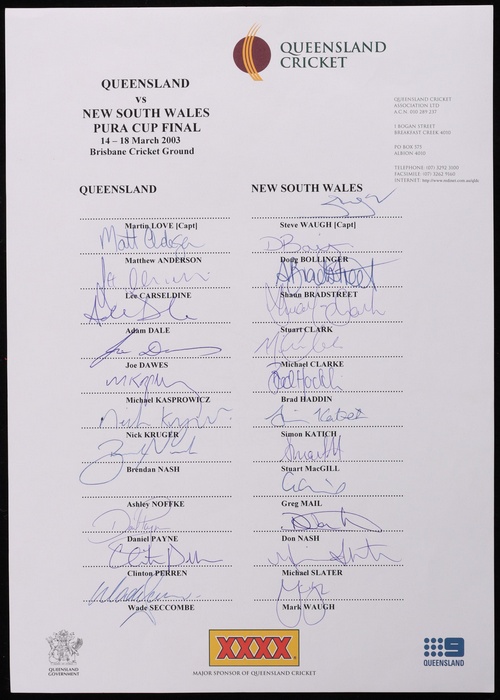 QUEENSLAND
CRICKET
QUEENSLAND
vs
NEW SOUTH WALES
PURA CUP FINAL
14 – 18 March 2003
Brisbane Cricket Ground
QUEENSLAND CRICKET
ASSOCIATION LTD
1 BOGAN STREET
BREAKFAST CREEK 4010
PO BOX 575
ALBION 4010
QUEENSLAND
Martin LOVE [Capt]
Matt Anderson
Matthew ANDERSON
Lee CARSELDINE
Adam DALE
Joe DAWES
Michael KASPROWICZ
Nick KRUGER
Brendan NASH
Ashley NOFFKE
Daniel PAYNE
Clinton PERREN
Wade SECCOMBE
NEW SOUTH WALES
Steve WAUGH [Capt]
Doug BOLLINGER
SBradstreet
Shaun BRADSTREET
Stuart CLARK
Michael CLARKE
Brad HADDIN
Simon KATICH
Stuart MacGILL
Greg MAIL
Don NASH
Michael SLATER
Mark WAUGH
QUEENSLAND
GOVERNMENT
XXXX
MAJOR SPONSOR OF QUEENSLAND CRICKET
9
QUEENSLAND